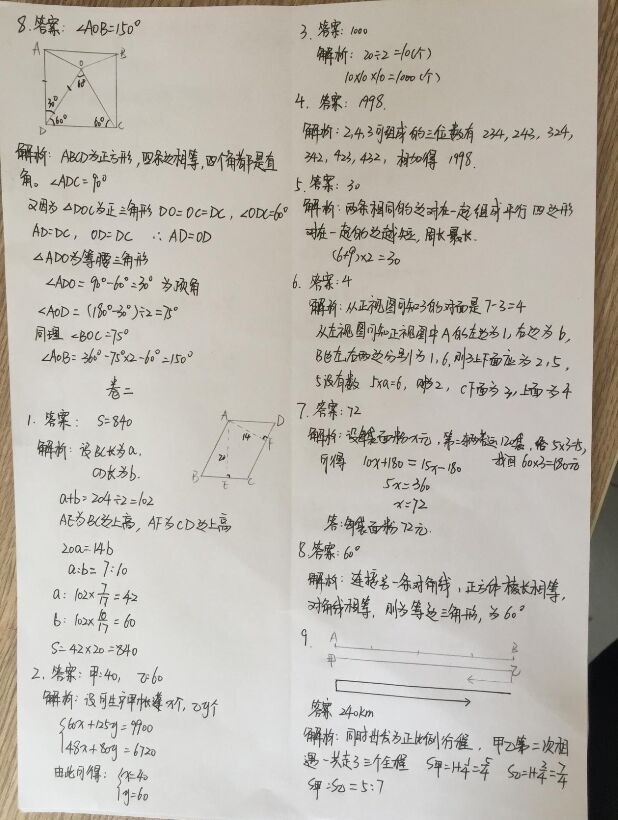 8. 答案: ∠AOB=150°
A
B
O
60°
30°
60°
60°
D
C
解析: ABCD为正方形, 四条边相等, 四个角都是直
角。∠ADC=90°
又因为△DOC为正三角形 DO=OC=DC, ∠ODC=60°
AD=DC, OD=DC ∴AD=OD
△ADO为等腰三角形
∠ADO=90°-60°=30° 为顶角
∠AOD=(180°-30°)÷2=75°
同理 ∠BOC=75°
∠AOB=360°-75°×2-60°=150°
卷二
1. 答案: S=840
A
D
14
F
20
B
E
C
解析: 设BC长为a,
CD长为b.
a+b=204÷2=102
AE为BC边上高, AF为CD边上高
20a=14b
a:b=7:10
a: 102×7/17=42
b: 102×10/17=60
S=42×20=840
2. 答案: 甲:40, 乙:60
解析: 设可生产甲 x个, 乙y个
{60x+125y=9900
48x+80y=6720
由此可得: {x=40
y=60
3. 答案: 1000
解析: 20÷2=10(个)
10×10×10=1000(个)
4. 答案: 1998.
解析: 2,4,3可组成的三位数有 234, 243, 324,
342, 423, 432, 相加得 1998.
5. 答案: 30
解析: 两条相同的边对在一起组成平行四边形
对在一起的边越短, 周长最长.
(6+9)×2=30
6. 答案: 4
解析: 从正视图可知3的对面是7-3=4
从左视图可知正视图中A的左边为1, 右边为6,
B的左右两边分别为1,6, 则上下面应为2,5,
5没有数 5×a=6, 则2, C下面为3, 上面为4
7. 答案: 72
解析: 设每袋面粉x元, 第二 120 5×3=15,
可得 10x+180=15x-180 60×3=180元
5x=360
x=72
答: 每袋面粉72元.
8. 答案: 60°
解析: 连接另一条对角线, 正方体棱长相等,
对角线相等, 则为等边三角形, 为60°
9.
A
B
甲
乙
答案 240km
解析: 同时出发为正比例行程, 甲乙第二次相
遇一共走了三个全程 S甲=1+1/4=5/4 S乙=1+3/4=7/4
S甲:S乙=5:7